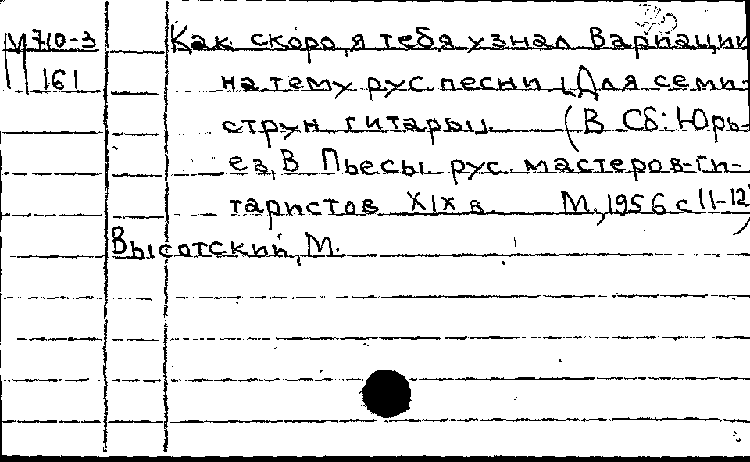 М 710-3
161
Как скоро я тебя узнал Вариации
на тему рус. песни (Для семи-
струн. гитары).     (В Сб: Юрь-
ев, В Пьесы рус. мастеров-ги-
таристов XIX в.     М., 1956 с 11-12)
Высотский, М.